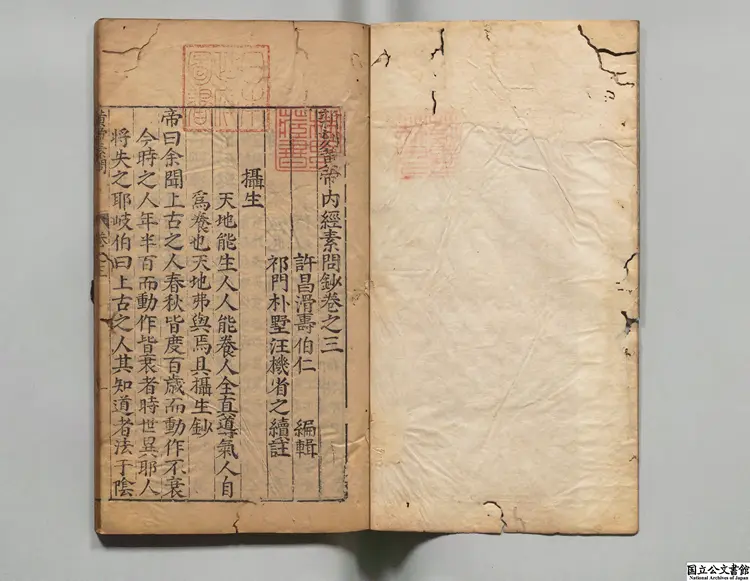 黃帝內經素問鈔卷之三
許昌滑壽伯仁　編輯
祁門朴墅汪機省之續註
攝生
天地能生人人能養人全直導氣人自
爲養也天地弗與焉具攝生鈔
帝曰余聞上古之人春秋皆度百歲而動作不衰
今時之人年半百而動作皆衰者時世異耶人
將失之耶岐伯曰上古之人其知道者法于陰
国立公文書館
National Archives of Japan